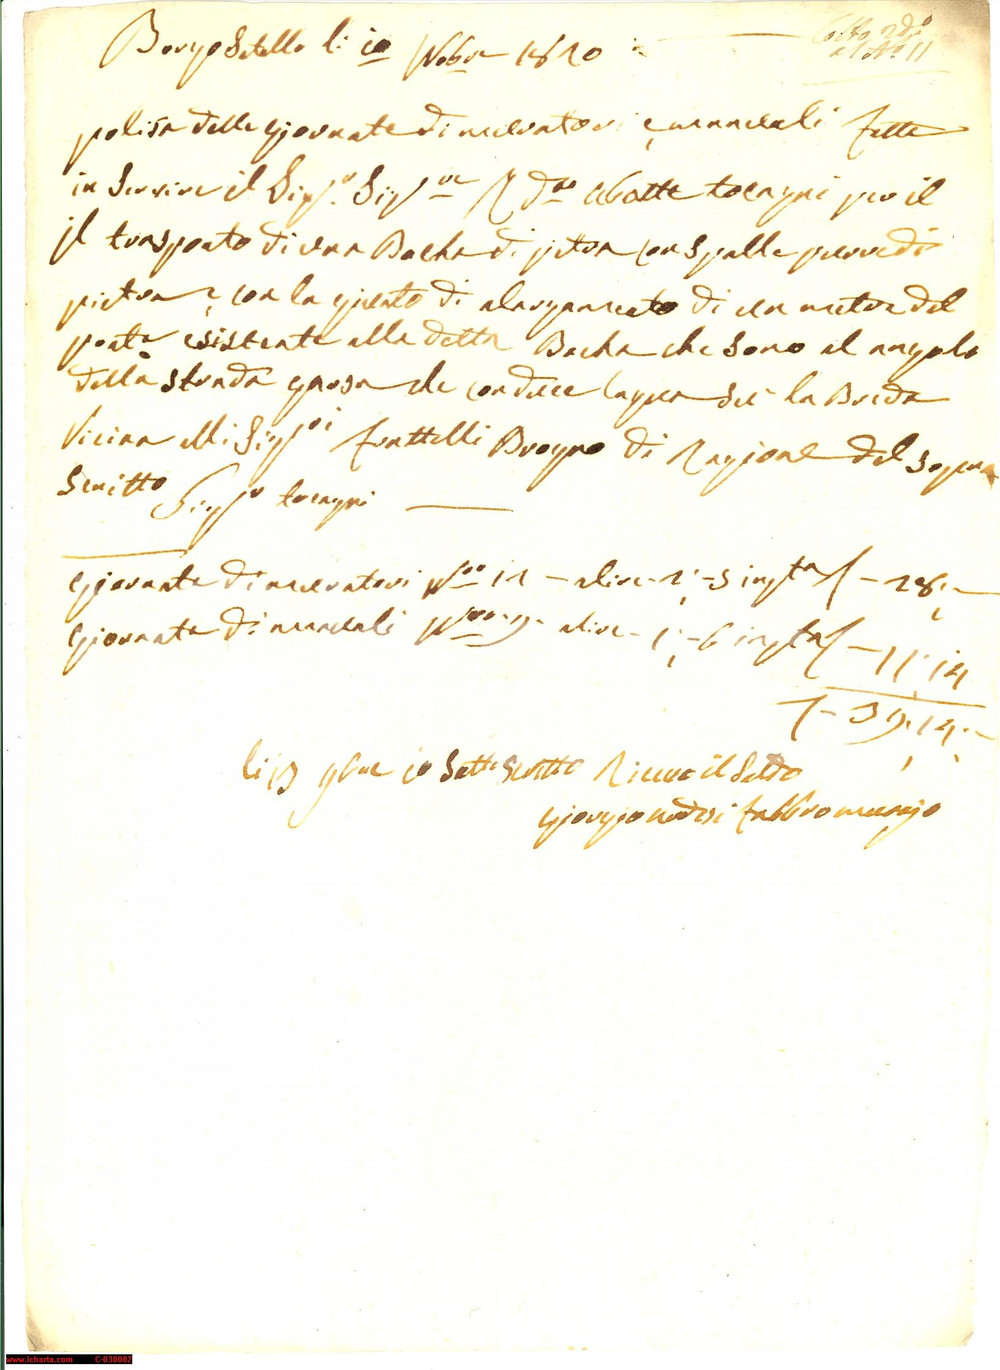 Borgo Satollo li 10 Nobre 1820
polisa delle Giornate di muratori e manuali fatte
in Servire il Sigr. Sigre R. do Abatte tocagni per il
il trasporto di una Bocha di pietra con spalle pure di
pietra e con la gionto di alargamento di un metre del
ponte esistente alla detta Bocha che sono al angolo
della strada grosa che conduce laqua su la Breda
Vicina alli Sigri frattelli Brogno di Ragione del sopra
Scritto Sigr tocagni
Giornate di muratori No 12 - alire - 2:-5 in tta L - 28:-
Giornate di manuali No 9 - alire - 1:-6 in tta L - 11:14
L - 39:14:-
li 13 9bre io Sotto Scritto Riceve il Saldo
Giorgio fabbro murajo
www.icharta.com C-030082